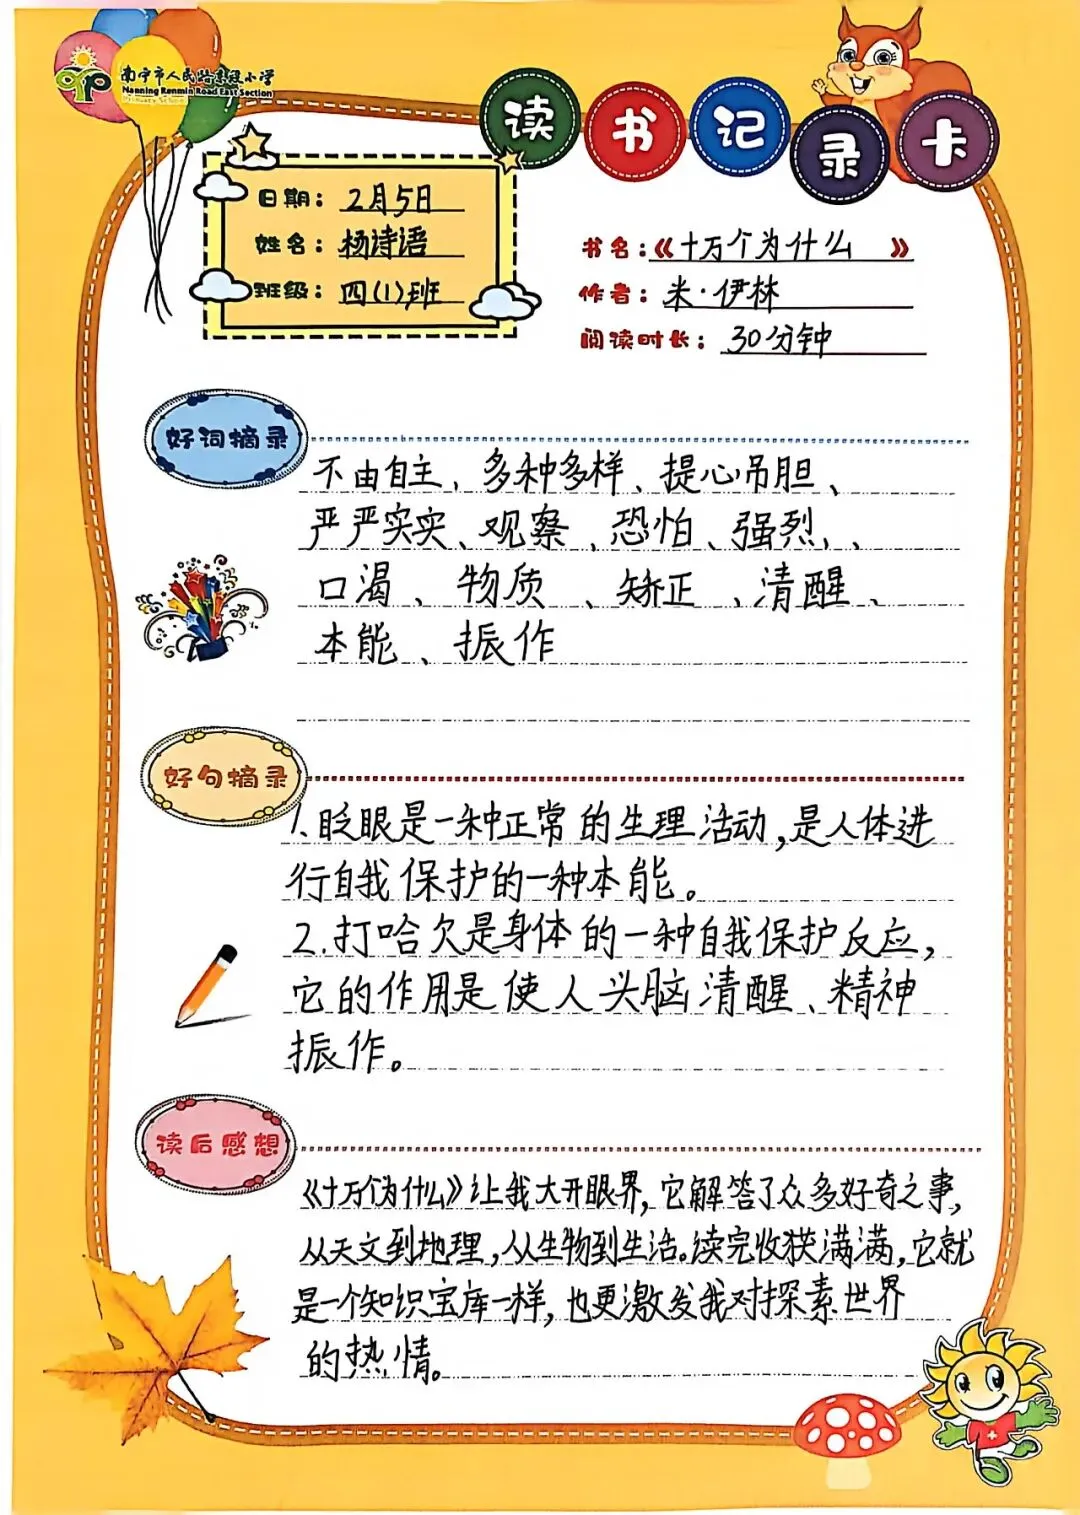 南宁市人民路东段小学
Nanning Renmin Road East Section
Primary School
读书记录卡
日期：2月5日
姓名：杨诗语
班级：四(1)班
书名：《十万个为什么》
作者：米·伊林
阅读时长：30分钟
好词摘录
不由自主、多种多样、提心吊胆、
严严实实、观察、恐怕、强烈、、
口渴、物质、矫正、清醒、
本能、振作
好句摘录
1.眨眼是一种正常的生理活动,是人体进
行自我保护的一种本能。
2.打哈欠是身体的一种自我保护反应,
它的作用是使人头脑清醒、精神
振作。
读后感想
《十万个为什么》让我大开眼界,它解答了众多好奇之事,
从天文到地理,从生物到生活。读完收获满满,它就
是一个知识宝库一样,也更激发我对探索世界
的热情。